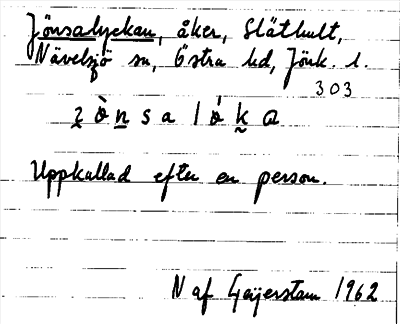 Jönsalyckan, åker, Släthult,
Nävelsjö sn, Östra hd, Jönk. l.
303
Uppkallad efter en person.
N af Geijerstam 1962